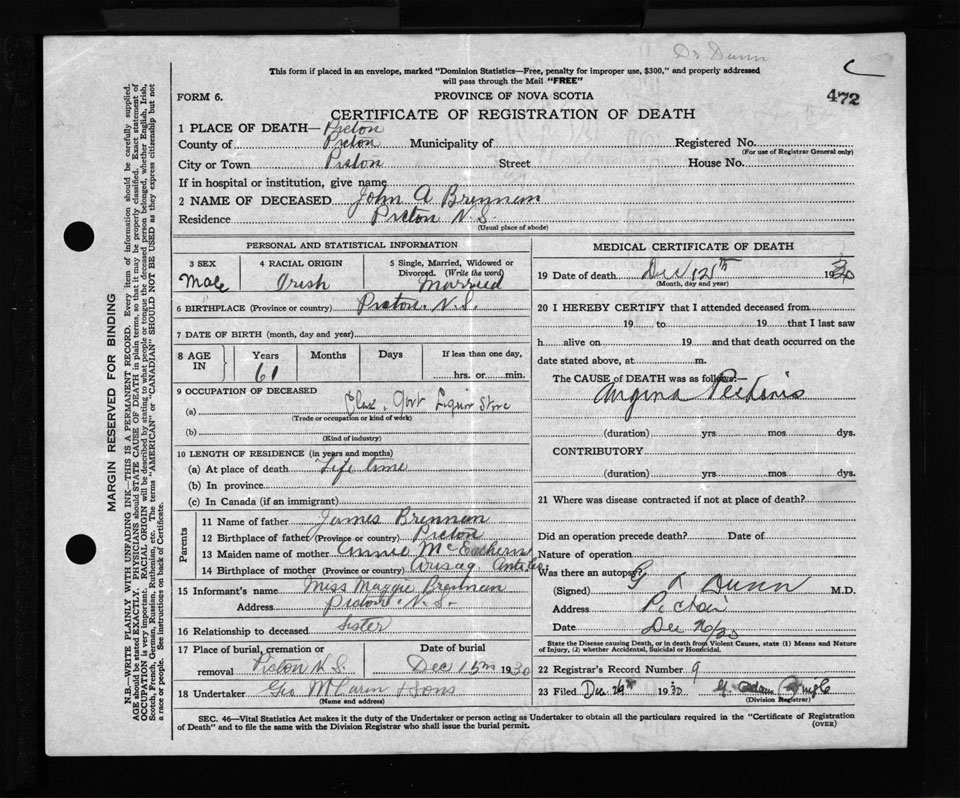 Dr Dunn
This form if placed in an envelope, marked "Dominion Statistics—Free, penalty for improper use, $300," and properly addressed
will pass through the Mail "FREE"
472
FORM 6.
PROVINCE OF NOVA SCOTIA
CERTIFICATE OF REGISTRATION OF DEATH
1 PLACE OF DEATH— Pictou
County of Pictou Municipality of Registered No.
(For use of Registrar General only)
City or Town Pictou Street House No.
If in hospital or institution, give name
2 NAME OF DECEASED John A Brennan
Residence Pictou N.S.
(Usual place of abode)
PERSONAL AND STATISTICAL INFORMATION
3 SEX
Male
4 RACIAL ORIGIN
Irish
5 Single, Married, Widowed or
Divorced. (Write the word)
Married
6 BIRTHPLACE (Province or country) Pictou. N.S.
7 DATE OF BIRTH (month, day and year)
8 AGE
IN
Years Months Days If less than one day,
61 hrs. or min.
9 OCCUPATION OF DECEASED
(a) Govt Liquor Store
(Trade or occupation or kind of work)
(b)
(Kind of industry)
10 LENGTH OF RESIDENCE (in years and months)
(a) At place of death Life time
(b) In province
(c) In Canada (if an immigrant)
Parents
11 Name of father James Brennan
12 Birthplace of father (Province or country) Pictou
13 Maiden name of mother Annie McEachern
14 Birthplace of mother (Province or country) Arisag
15 Informant's name Miss Maggie Brennan
Address Pictou. N.S.
16 Relationship to deceased Sister
17 Place of burial, cremation or
removal Pictou N.S.
Date of burial
Dec 15th 1930
18 Undertaker Geo & Sons
(Name and address)
MEDICAL CERTIFICATE OF DEATH
19 Date of death Dec 12th 1930
(Month, day and year)
20 I HEREBY CERTIFY that I attended deceased from
19 to 19 that I last saw
h alive on 19 and that death occurred on the
date stated above, at m.
The CAUSE of DEATH was as follows:—
Angina Pectoris
(duration) yrs mos dys.
CONTRIBUTORY
(duration) yrs mos dys.
21 Where was disease contracted if not at place of death?
Did an operation precede death? Date of
Nature of operation
Was there an autopsy
(Signed) G A Dunn M.D.
Address Pictou
Date Dec 26/30
State the Disease causing Death, or in death from Violent Causes, state (1) Means and Nature
of Injury, (2) whether Accidental, Suicidal or Homicidal.
22 Registrar's Record Number 9
23 Filed Dec 26th 1930
(Division Registrar)
SEC. 46—Vital Statistics Act makes it the duty of the Undertaker or person acting as Undertaker to obtain all the particulars required in the "Certificate of Registration
of Death" and to file the same with the Division Registrar who shall issue the burial permit.
(OVER)
MARGIN RESERVED FOR BINDING
N.B.—WRITE PLAINLY WITH UNFADING INK—THIS IS A PERMANENT RECORD. Every item of information should be carefully supplied.
AGE should be stated EXACTLY. PHYSICIANS should STATE CAUSE OF DEATH in plain terms, so that it may be properly classified. Exact statement of
OCCUPATION is very important. RACIAL ORIGIN will be described by stating to what people or tongue the deceased person belonged, whether English, Irish,
Scotch, French, German, Russian, Ruthenian, etc. The terms "AMERICAN" or "CANADIAN" SHOULD NOT BE USED as they express citizenship but not
a race or people. See instructions on back of Certificate.